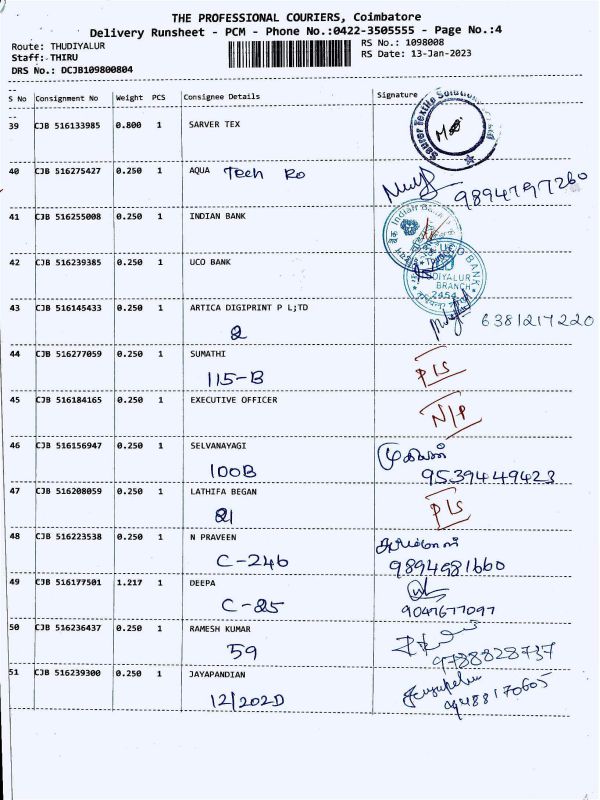 THE PROFESSIONAL COURIERS, Coimbatore
Delivery Runsheet - PCM - Phone No.:0422-3505555 - Page No.:4
Route: THUDIYALUR
RS No.: 1098008
Staff: THIRU
RS Date: 13-Jan-2023
DRS No.: DCJB109800804
S No Consignment No Weight PCS Consignee Details Signature
39 CJB 516133985 0.800 1 SARVER TEX
40 CJB 516275427 0.250 1 AQUA Tech Ro
9894797260
41 CJB 516255008 0.250 1 INDIAN BANK
Indian Bank
42 CJB 516239385 0.250 1 UCO BANK
UCO BANK
BRANCH
2454
43 CJB 516145433 0.250 1 ARTICA DIGIPRINT P L;TD
2 6381217220
44 CJB 516277059 0.250 1 SUMATHI
115-B P/S
45 CJB 516184165 0.250 1 EXECUTIVE OFFICER
N/P
46 CJB 516156947 0.250 1 SELVANAYAGI
100B 9539449423
47 CJB 516208059 0.250 1 LATHIFA BEGAN
21 P/S
48 CJB 516223538 0.250 1 N PRAVEEN
C-246
49 CJB 516177501 1.217 1 DEEPA
C-25 9047677097
50 CJB 516236437 0.250 1 RAMESH KUMAR
59 9788828737
51 CJB 516239300 0.250 1 JAYAPANDIAN
12/202D 9488170605